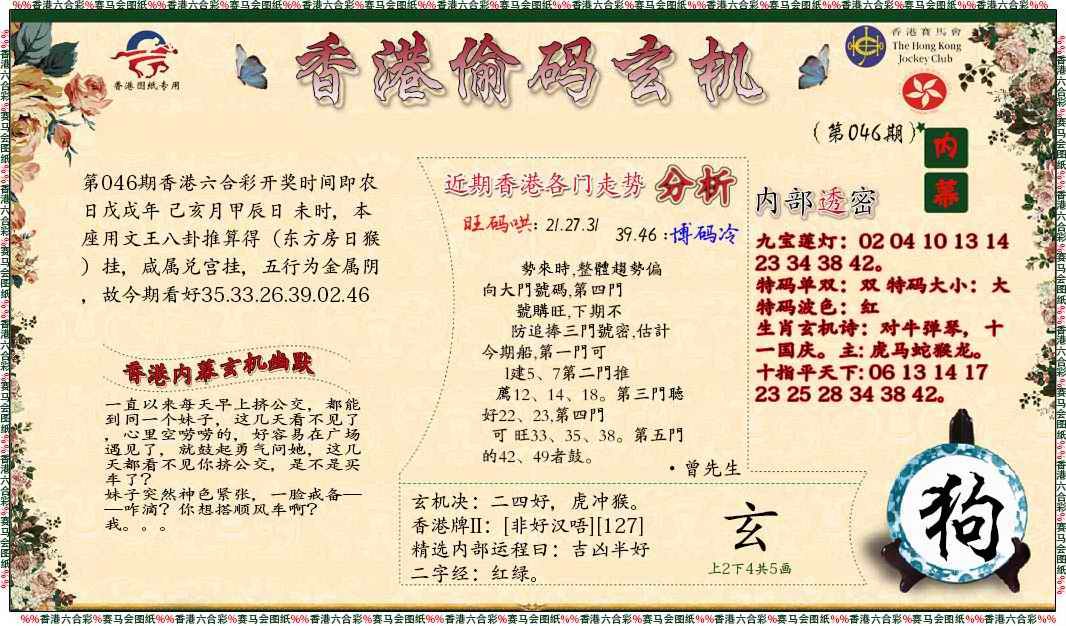 %%香港六合彩%赛马会图纸%%香港六合彩%赛马会图纸%%香港六合彩%赛马会图纸%%香港六合彩%赛马会图纸%%香港六合彩%赛马会图纸%%香港六合彩%赛马会图纸%%香港六合彩%%
香港图纸专用
香港偷码玄机
香港賽馬會
The Hong Kong
Jockey Club
(第046期)
内
幕
第046期香港六合彩开奖时间即农
日戊戌年 己亥月甲辰日 未时，本
座用文王八卦推算得（东方房日猴
）挂，咸属兑宫挂，五行为金属阴
，故今期看好35.33.26.39.02.46
香港内幕玄机幽默
一直以来每天早上挤公交，都能
到同一个妹子，这几天看不见了
，心里空唠唠的，好容易在广场
遇见了，就鼓起勇气问她，这几
天都看不见你挤公交，是不是买
车了？
妹子突然神色紧张，一脸戒备—
—咋滴？你想搭顺风车啊？
我。。。
近期香港各门走势 分析
旺码哄：21.27.31
39.46：博码冷
勢來時,整體趨勢偏
向大門號碼,第四門
號購旺,下期不
防追捧三門號密,估計
今期船,第一門可
1建5、7第二門推
薦12、14、18。第三門聽
好22、23,第四門
可 旺33、35、38。第五門
的42、49者鼓。
·曾先生
内部透密
九宝莲灯：02 04 10 13 14
23 34 38 42。
特码单双：双 特码大小：大
特码波色：红
生肖玄机诗：对牛弹琴，十
一国庆。主: 虎马蛇猴龙。
十指平天下: 06 13 14 17
23 25 28 34 38 42。
玄机决：二四好，虎冲猴。
香港牌II：[非好汉唔][127]
精选内部运程曰：吉凶半好
二字经：红绿。
玄
上2下4共5画
狗
%%香港六合彩%赛马会图纸%%香港六合彩%赛马会图纸%%香港六合彩%赛马会图纸%%香港六合彩%赛马会图纸%%香港六合彩%赛马会图纸%%香港六合彩%赛马会图纸%%香港六合彩%%